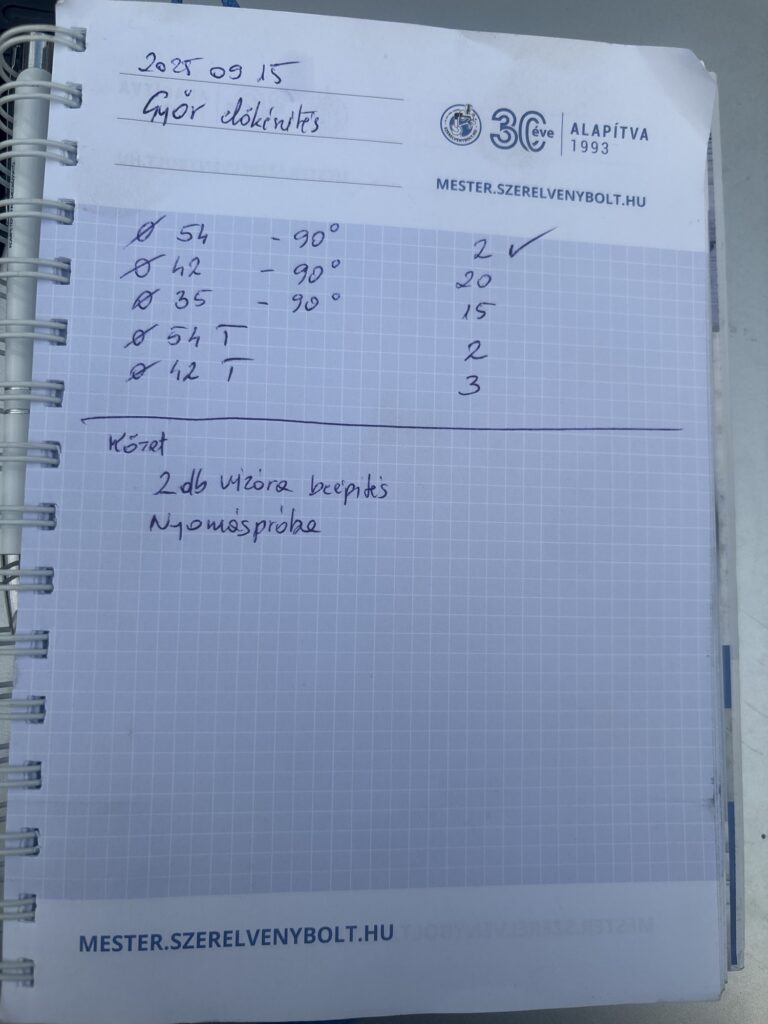 2025 09 15
Győr előkészítés
30 éve ALAPÍTVA 1993
MESTER.SZERELVENYBOLT.HU
Ø 54 - 90° 2 ✓
Ø 42 - 90° 20
Ø 35 - 90° 15
Ø 54 T 2
Ø 42 T 3
2 db vízóra beépítés
Nyomáspróba
MESTER.SZERELVENYBOLT.HU